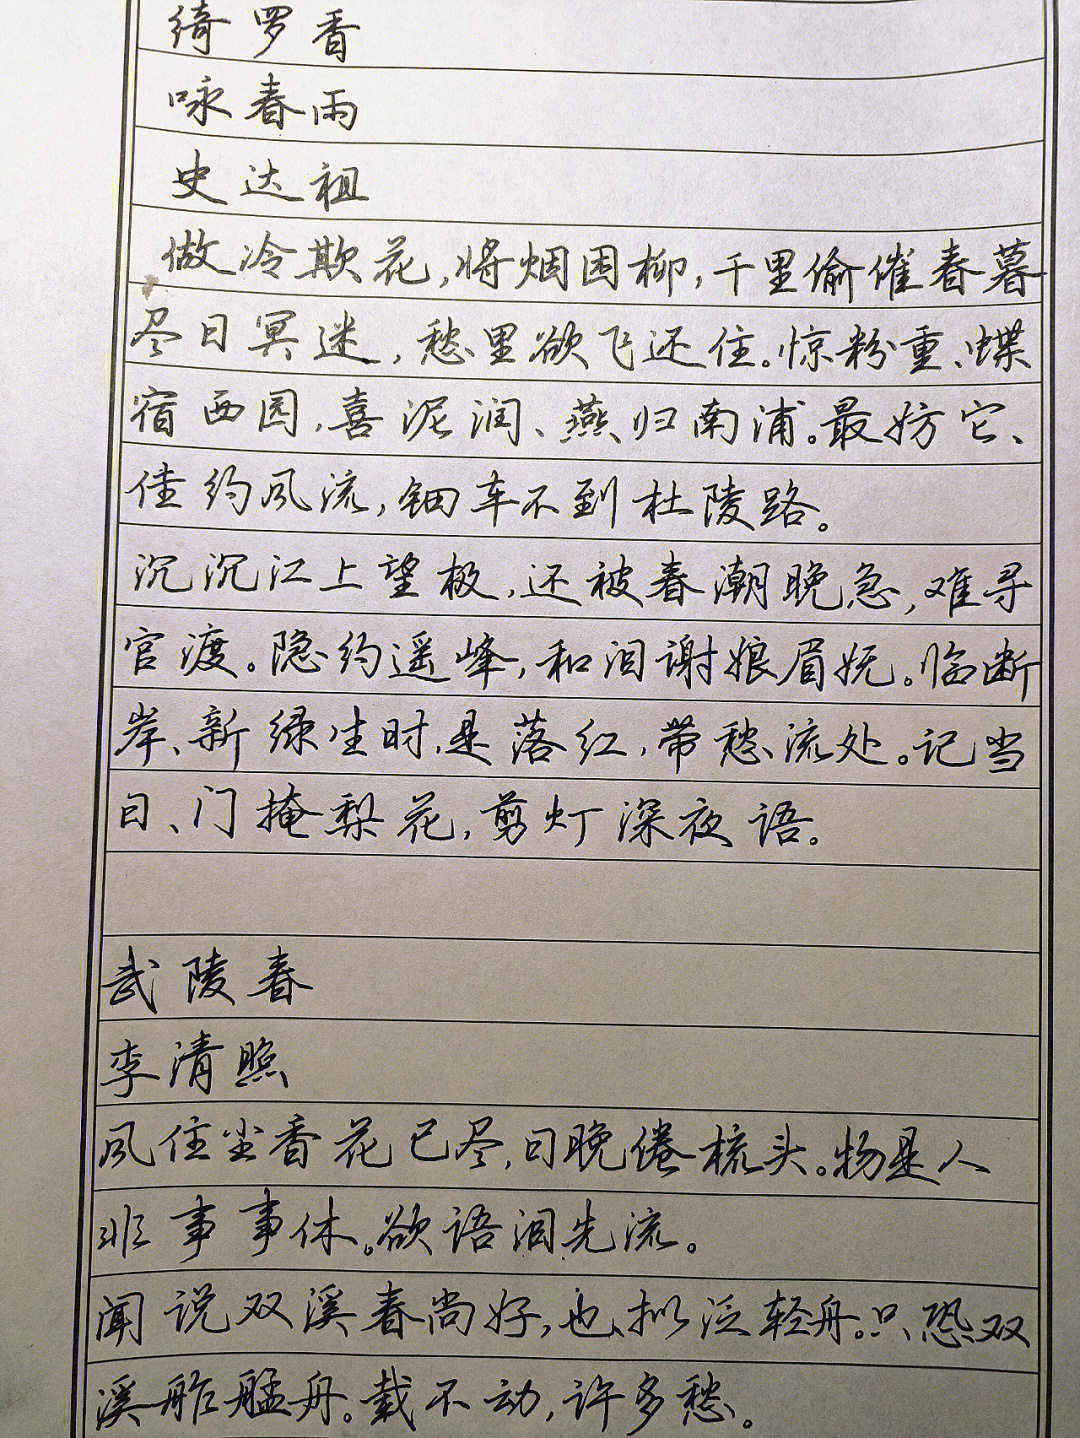 绮罗香
咏春雨
史达祖
做冷欺花,将烟困柳,千里偷催春暮
尽日冥迷,愁里欲飞还住。惊粉重、蝶
宿西园,喜泥润、燕归南浦。最妨它、
佳约风流,钿车不到杜陵路。
沉沉江上望极,还被春潮晚急,难寻
官渡。隐约遥峰,和泪谢娘眉妩。临断
岸、新绿生时,是落红,带愁流处。记当
日、门掩梨花,剪灯深夜语。
武陵春
李清照
风住尘香花已尽,日晚倦梳头。物是人
非事事休。欲语泪先流。
闻说双溪春尚好,也拟泛轻舟。只恐双
溪舴艋舟。载不动,许多愁。